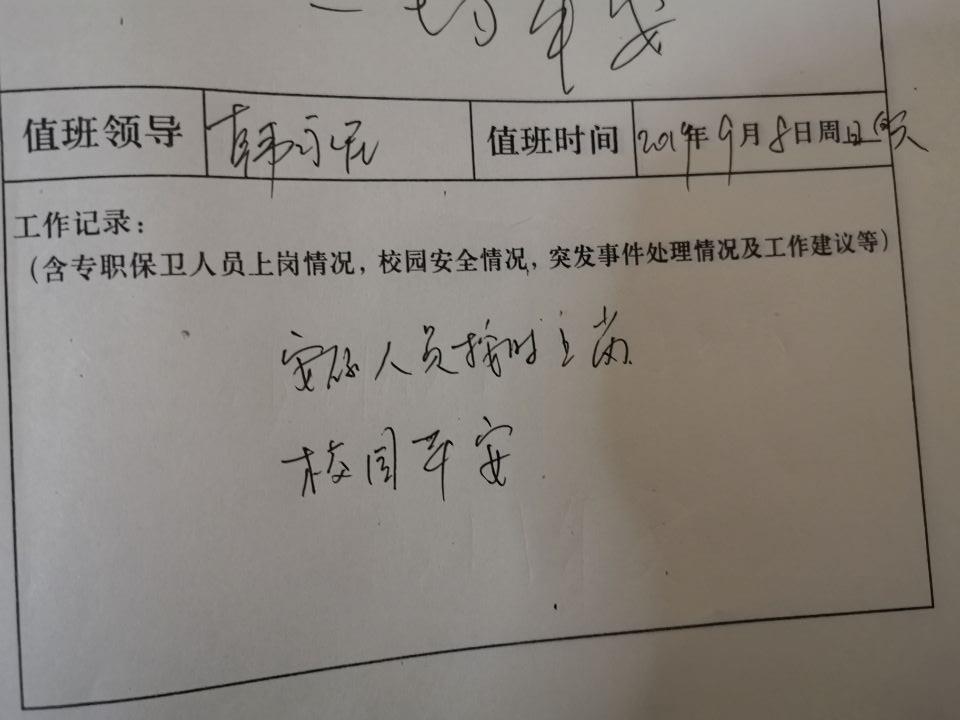 一切平安
值班领导 韩永宏 值班时间 2019年9月8日周日(白天
工作记录：
（含专职保卫人员上岗情况，校园安全情况，突发事件处理情况及工作建议等）
安保人员按时上岗
校园平安